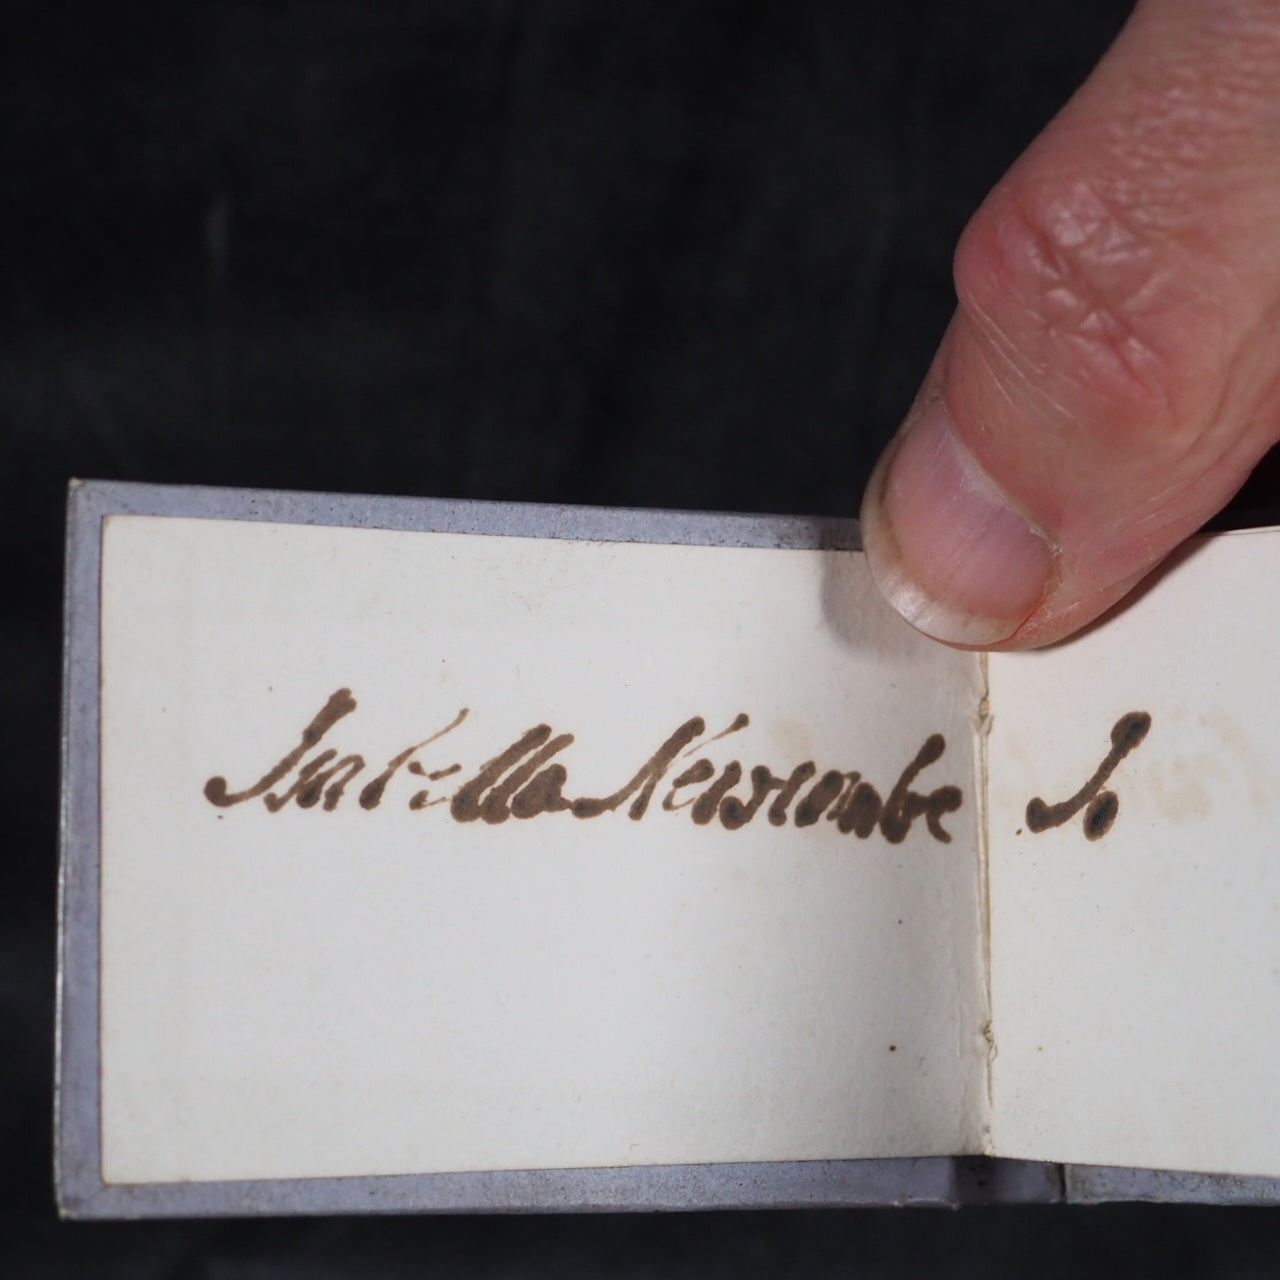 Isabella Newcombe Jo